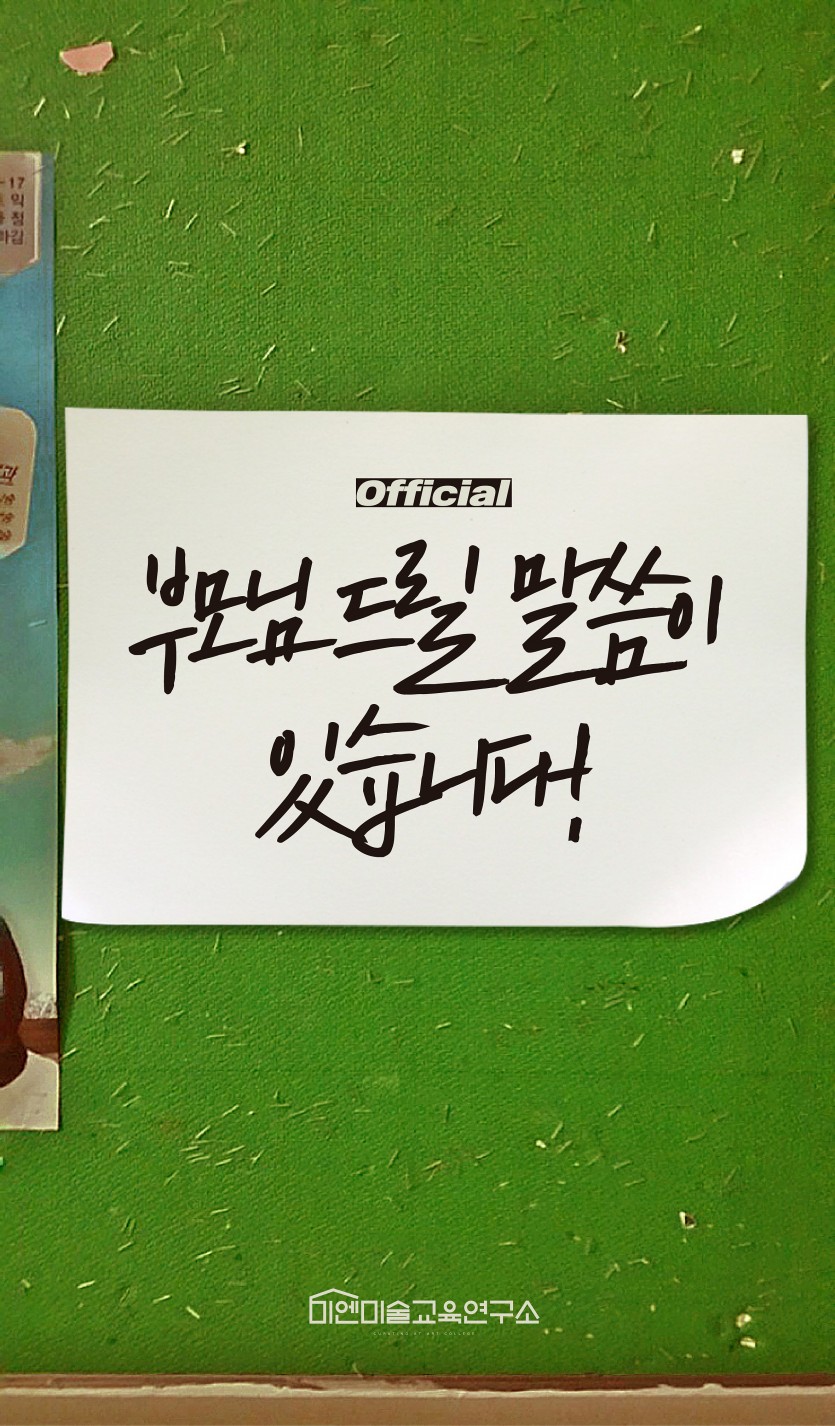 -17
익
정
하김
과
Official
부모님 드릴 말씀이
있습니다!
미엔미술교육연구소